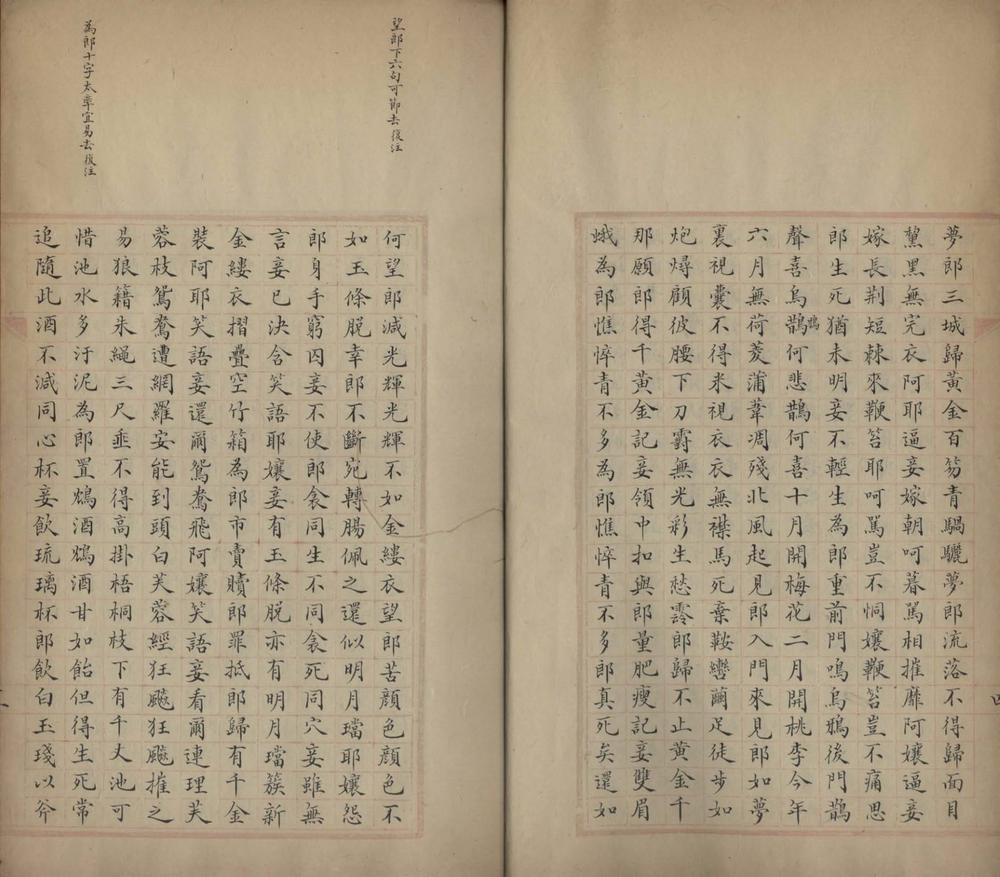 夢郎三城歸黃金百笏青騧驪夢郎流落不得歸面目
黧黑無完衣阿耶逼妾嫁朝呵暮罵相摧靡阿孃逼妾
嫁長荆短棘來鞭笞耶呵罵豈不恫孃鞭笞豈不痛思
郎生死猶未明妾不輕生為郎重前門鳴烏鴉後門鵲
聲喜烏鵲何悲鵲何喜十月開梅花二月開桃李今年
鴉
六月無荷菱蒲葦凋殘北風起見郎入門來見郎如夢
裏視囊不得米視衣衣無襟馬死棄鞍轡繭足徒步如
炮燖顧彼腰下刀霽無光彩生愁霠郎歸不止黃金千
那願郎得千黃金記妾領中扣與郎量肥瘦記妾雙眉
蛾為郎憔悴青不多為郎憔悴青不多郎真死矣還如
望郎下六句可節去後注
何望郎減光輝光輝不如金縷衣望郎苦顏色顏色不
如玉條脫幸郎不斷宛轉腸佩之還似明月璫耶孃怨
郎身手窮囚妾不使郎衾同生不同衾死同穴妾雖無
言妾已決含笑語耶孃妾有玉條脫亦有明月璫簇新
金縷衣摺疊空竹箱為郎市賣贖郎罪抵郎歸有千金
裝阿耶笑語妾還爾鴛鴦飛阿孃笑語妾看爾連理芙
蓉枝鴛鴦遭網羅安能到頭白芙蓉經狂飈狂飈摧之
易狼籍朱繩三尺垂不得高掛梧桐枝下有千丈池可
惜池水多汙泥為郎置鴆酒鴆酒甘如飴但得生死常
追隨此酒不減同心杯妾飲琉璃杯郎飲白玉琖以斧
為郎十字太率宜易去後注